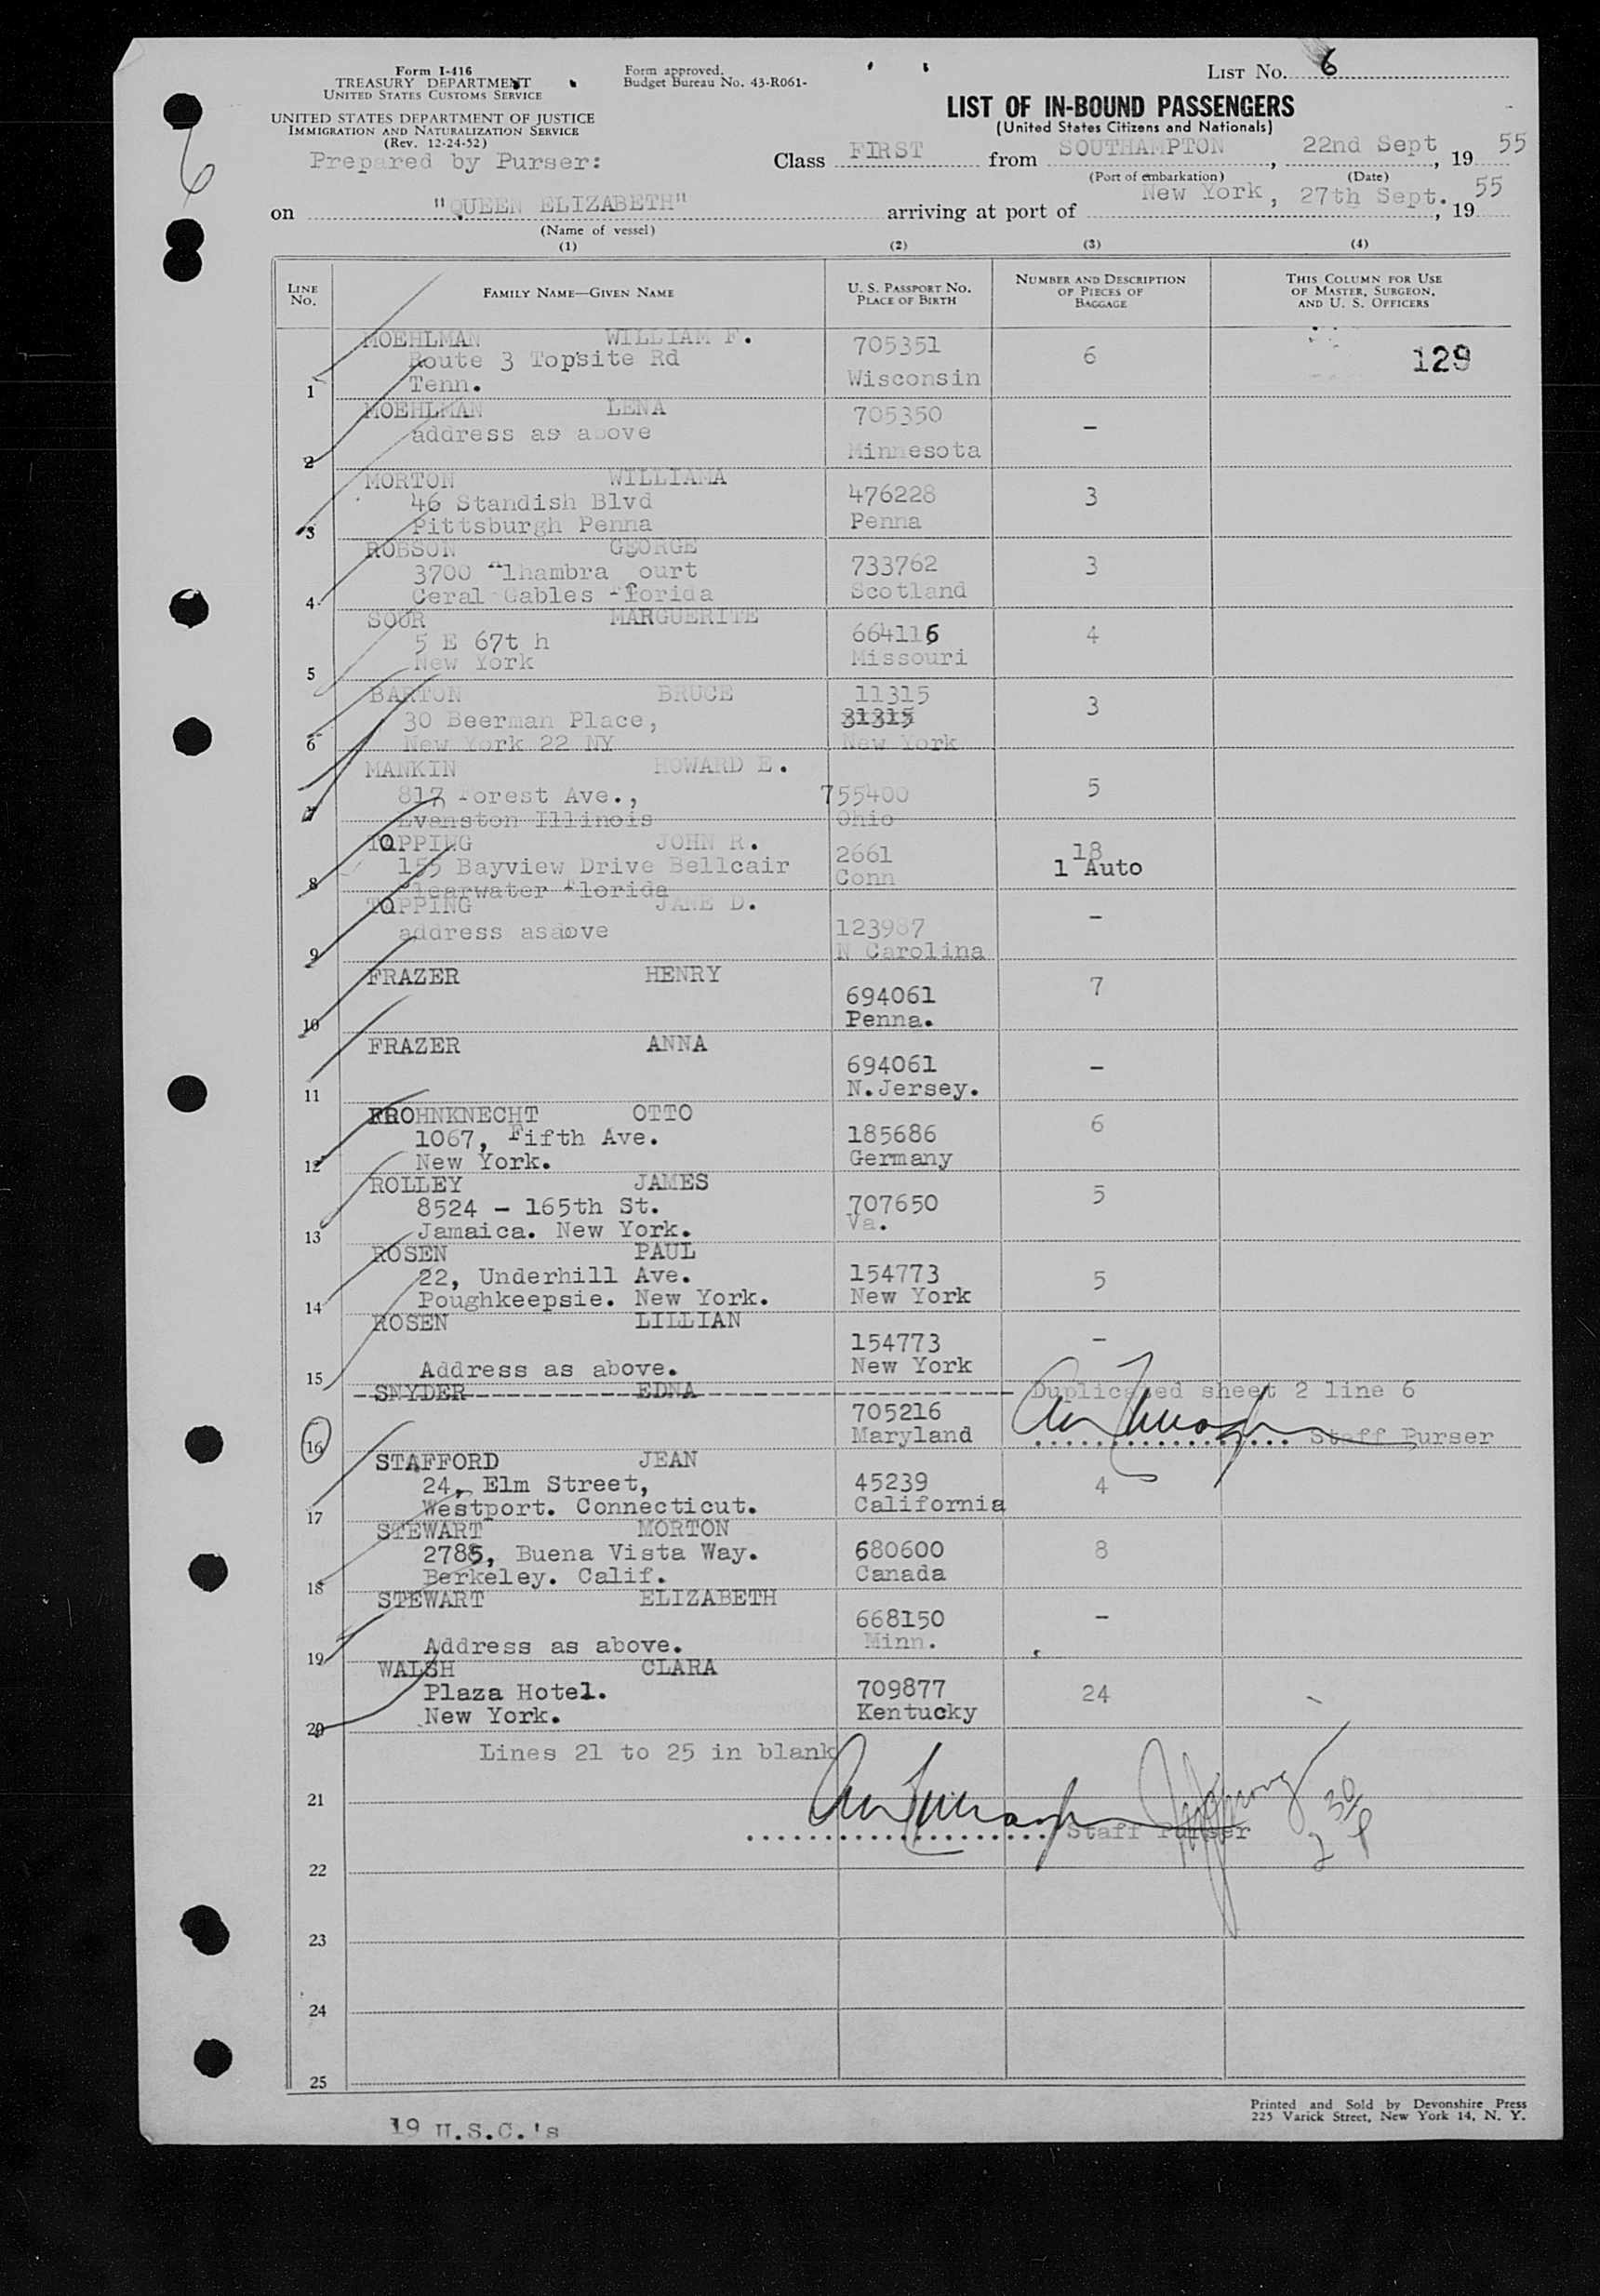 Form I-416
TREASURY DEPARTMENT
UNITED STATES CUSTOMS SERVICE
UNITED STATES DEPARTMENT OF JUSTICE
IMMIGRATION AND NATURALIZATION SERVICE
(Rev. 12-24-52)
Prepared by Purser:
6
Form approved.
Budget Bureau No. 43-R061-
LIST NO. 6
LIST OF IN-BOUND PASSENGERS
(United States Citizens and Nationals)
Class FIRST from SOUTHAMPTON, 22nd Sept, 19 55
(Port of embarkation) (Date)
on "QUEEN ELIZABETH" arriving at port of New York, 27th Sept., 19 55
(Name of vessel)
(1) (2) (3) (4)
LINE NO. FAMILY NAME—GIVEN NAME U. S. PASSPORT NO. PLACE OF BIRTH NUMBER AND DESCRIPTION OF PIECES OF BAGGAGE THIS COLUMN FOR USE OF MASTER, SURGEON, AND U. S. OFFICERS
MOEHLMAN WILLIAM F. 705351
Route 3 Topsite Rd 6 129
1 Tenn. Wisconsin
MOEHLMAN LENA 705350
address as above -
2 Minnesota
MORTON WILLIAMA
46 Standish Blvd 476228 3
3 Pittsburgh Penna Penna
ROBSON GEORGE
3700 Alhambra ourt 733762 3
4 Ceral Gables Florida Scotland
SOUR MARGUERITE
5 E 67t h 664116 4
5 New York Missouri
BARTON BRUCE 11315
30 Beerman Place, 31315 3
6 New York 22 NY New York
MANKIN HOWARD E.
817 Forest Ave., 755400 5
7 Evanston Illinois Ohio
TOPPING JOHN R. 2661 18
155 Bayview Drive Bellcair Conn 1 Auto
8 Clearwater Florida
TOPPING JANE D.
address asabove 123987 -
9 N Carolina
FRAZER HENRY 7
694061
10 Penna.
FRAZER ANNA
694061 -
11 N.Jersey.
FROHNKNECHT OTTO 6
1067, Fifth Ave. 185686
12 New York. Germany
ROLLEY JAMES 5
8524 - 165th St. 707650
13 Jamaica. New York. Va.
ROSEN PAUL
22, Underhill Ave. 154773 5
14 Poughkeepsie. New York. New York
ROSEN LILLIAN
154773 -
15 Address as above. New York
SNYDER EDNA Duplicated sheet 2 line 6
705216
16 Maryland Staff Purser
STAFFORD JEAN
24, Elm Street, 45239 4
17 Westport. Connecticut. California
STEWART MORTON
2785, Buena Vista Way. 680600 8
18 Berkeley. Calif. Canada
STEWART ELIZABETH
668150 -
19 Address as above. Minn.
WALSH CLARA
Plaza Hotel. 709877 24
20 New York. Kentucky
Lines 21 to 25 in blank
21
Staff Purser
22
23
24
25
Printed and Sold by Devonshire Press
225 Varick Street, New York 14, N. Y.
19 U.S.C.'s